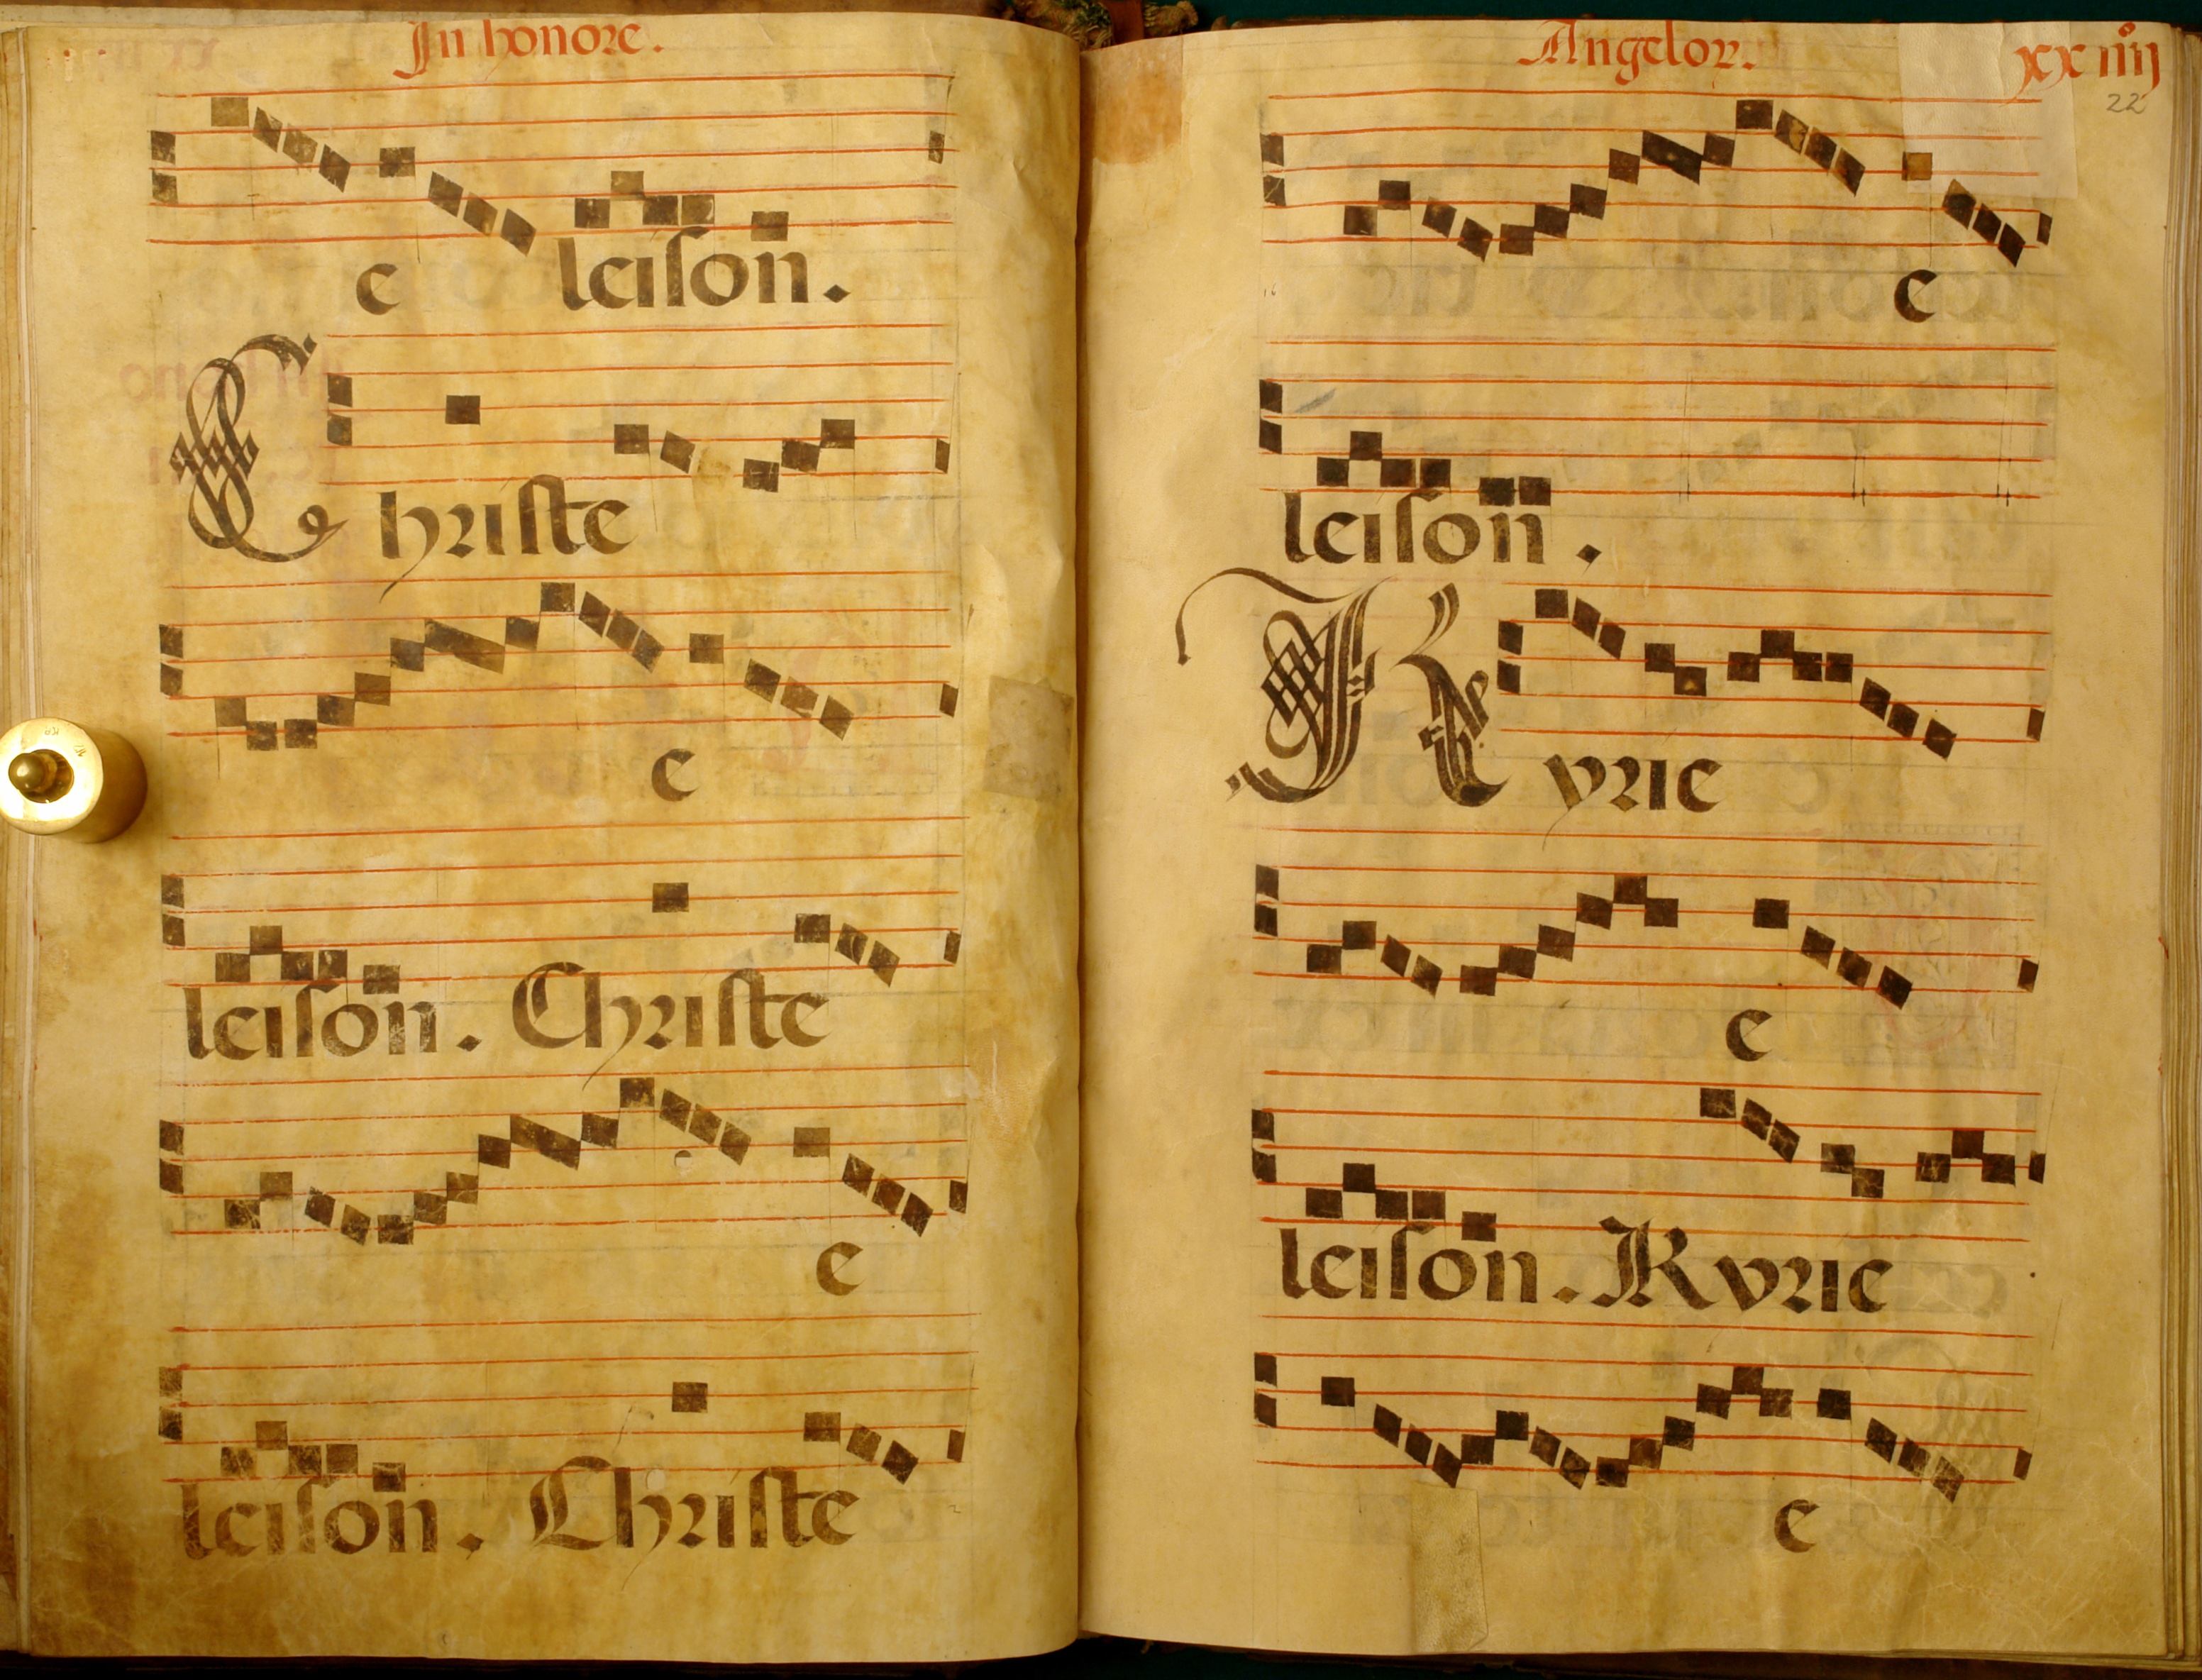 In honore.
e leison.
Christe
e
leison. Christe
e
leison. Christe
Angelor.
xxiiij
22
e
leison.
Kyrie
e
leison. Kyrie
e